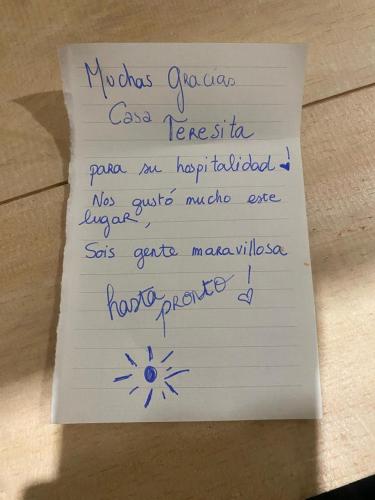 Muchas Gracias
Casa Teresita
para su hospitalidad!
Nos gustó mucho este
lugar,
Sois gente maravillosa
hasta pronto!